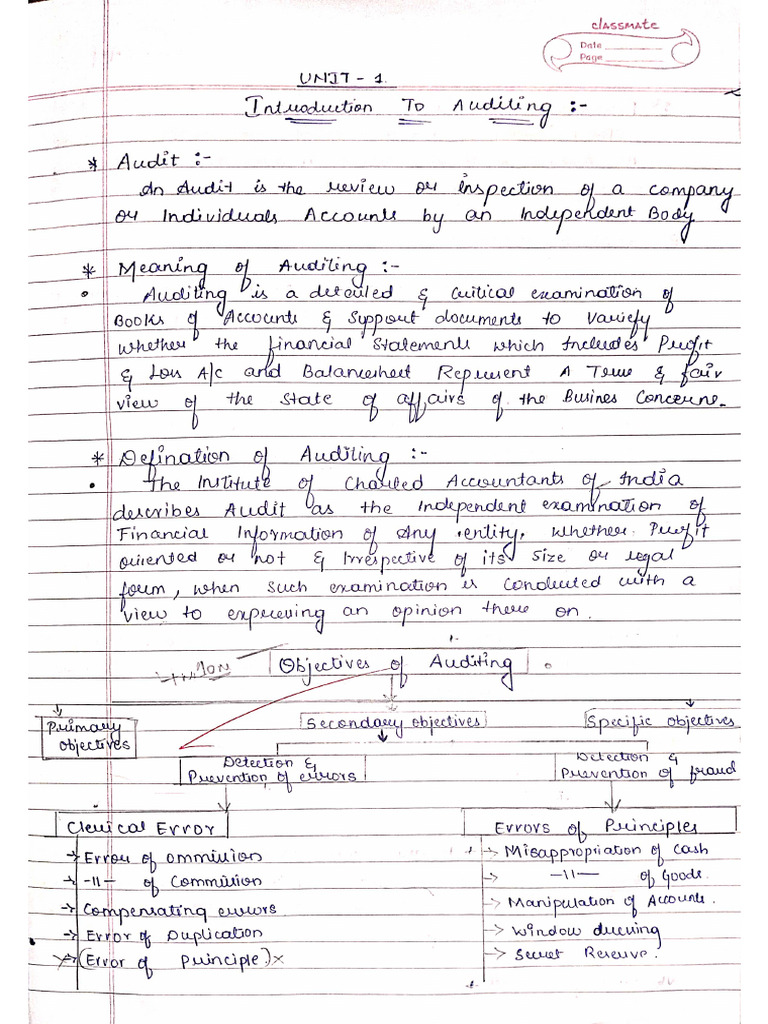 classmate
Date
Page
UNIT - 1.
Introduction To Auditing :-
* Audit :-
An Audit is the review or inspection of a company
or Individuals Accounts by an Independent Body
* Meaning of Auditing :-
• Auditing is a detailed & critical examination of
Books of Accounts & Support documents to Variefy
whether the financial Statements which Includes Profit
& Loss A/c and Balancesheet Represent A True & fair
view of the State of affairs of the Busines Concerne.
* Defination of Auditing :-
• The Institute of Charted Accountants of India
describes Audit as the Independent examination of
Financial Information of Any entity, whether Profit
oriented or not & Irrespective of its Size or legal
form, when such examination is conducted with a
view to expressing an opinion there on.
Objectives of Auditing
Primary objectives
Secondary objectives
Specific objectives
Detection & Prevention of errors
Detection & Prevention of fraud
Clerical Error
Errors of Principles
→ Error of ommission
→ Misappropriation of cash
→ -11- of Commission
→ -11- of Goods.
→ Compensating errors
→ Manipulation of Accounts.
→ Error of Duplication
→ Window dressing
→ (Error of Principle) x
→ Secret Reserve.